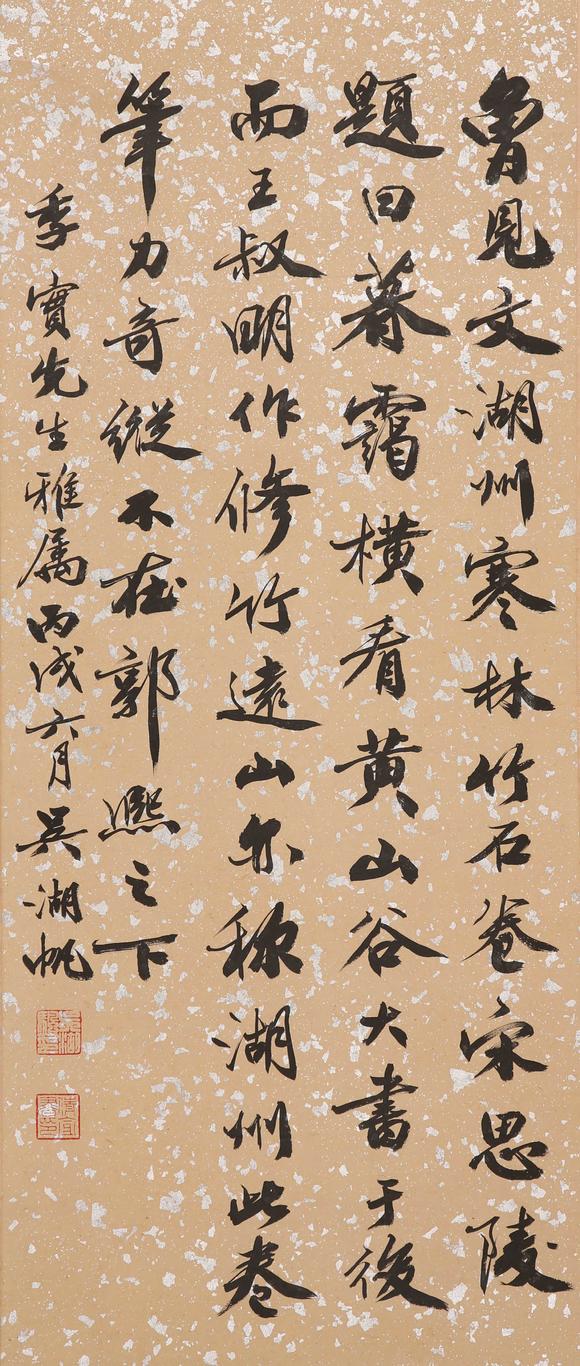 曾見文湖州寒林竹石卷宋思陵
題曰暮靄橫看黃山谷大書于後
而王叔明作修竹遠山亦称湖州此卷
筆力奇縱不在郭熙之下
季實先生雅属丙戌六月吴湖帆